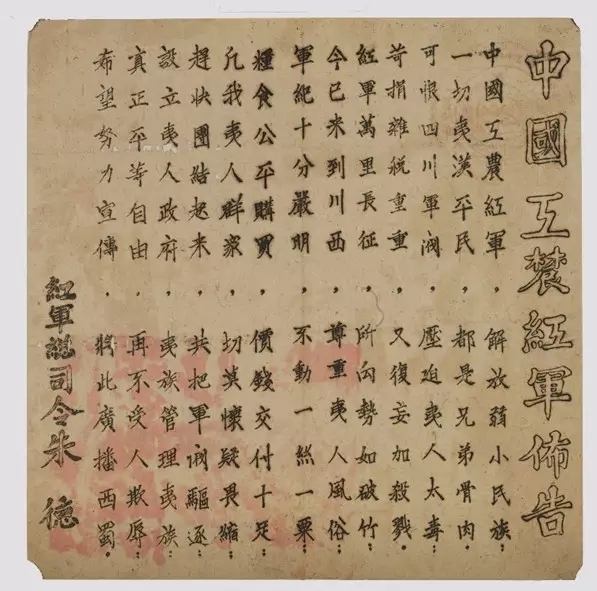 中國工農紅軍佈告
中國工農紅軍，解放弱小民族；
一切夷漢平民，都是兄弟骨肉.
可恨四川軍閥，壓迫夷人太毒；
苛捐雜稅重重，又復妄加殺戮.
紅軍萬里長征，所向勢如破竹；
今已來到川西，尊重夷人風俗；
軍紀十分嚴明，不動一絲一粟；
糧食公平購買，價錢交付十足；
凡我夷人群衆，切莫懷疑畏縮；
趕快團結起來，共把軍閥驅逐；
設立夷人政府，夷族管理夷族；
真正平等自由，再不受人欺辱；
希望努力宣傳，將此廣播西蜀.
紅軍總司令朱德